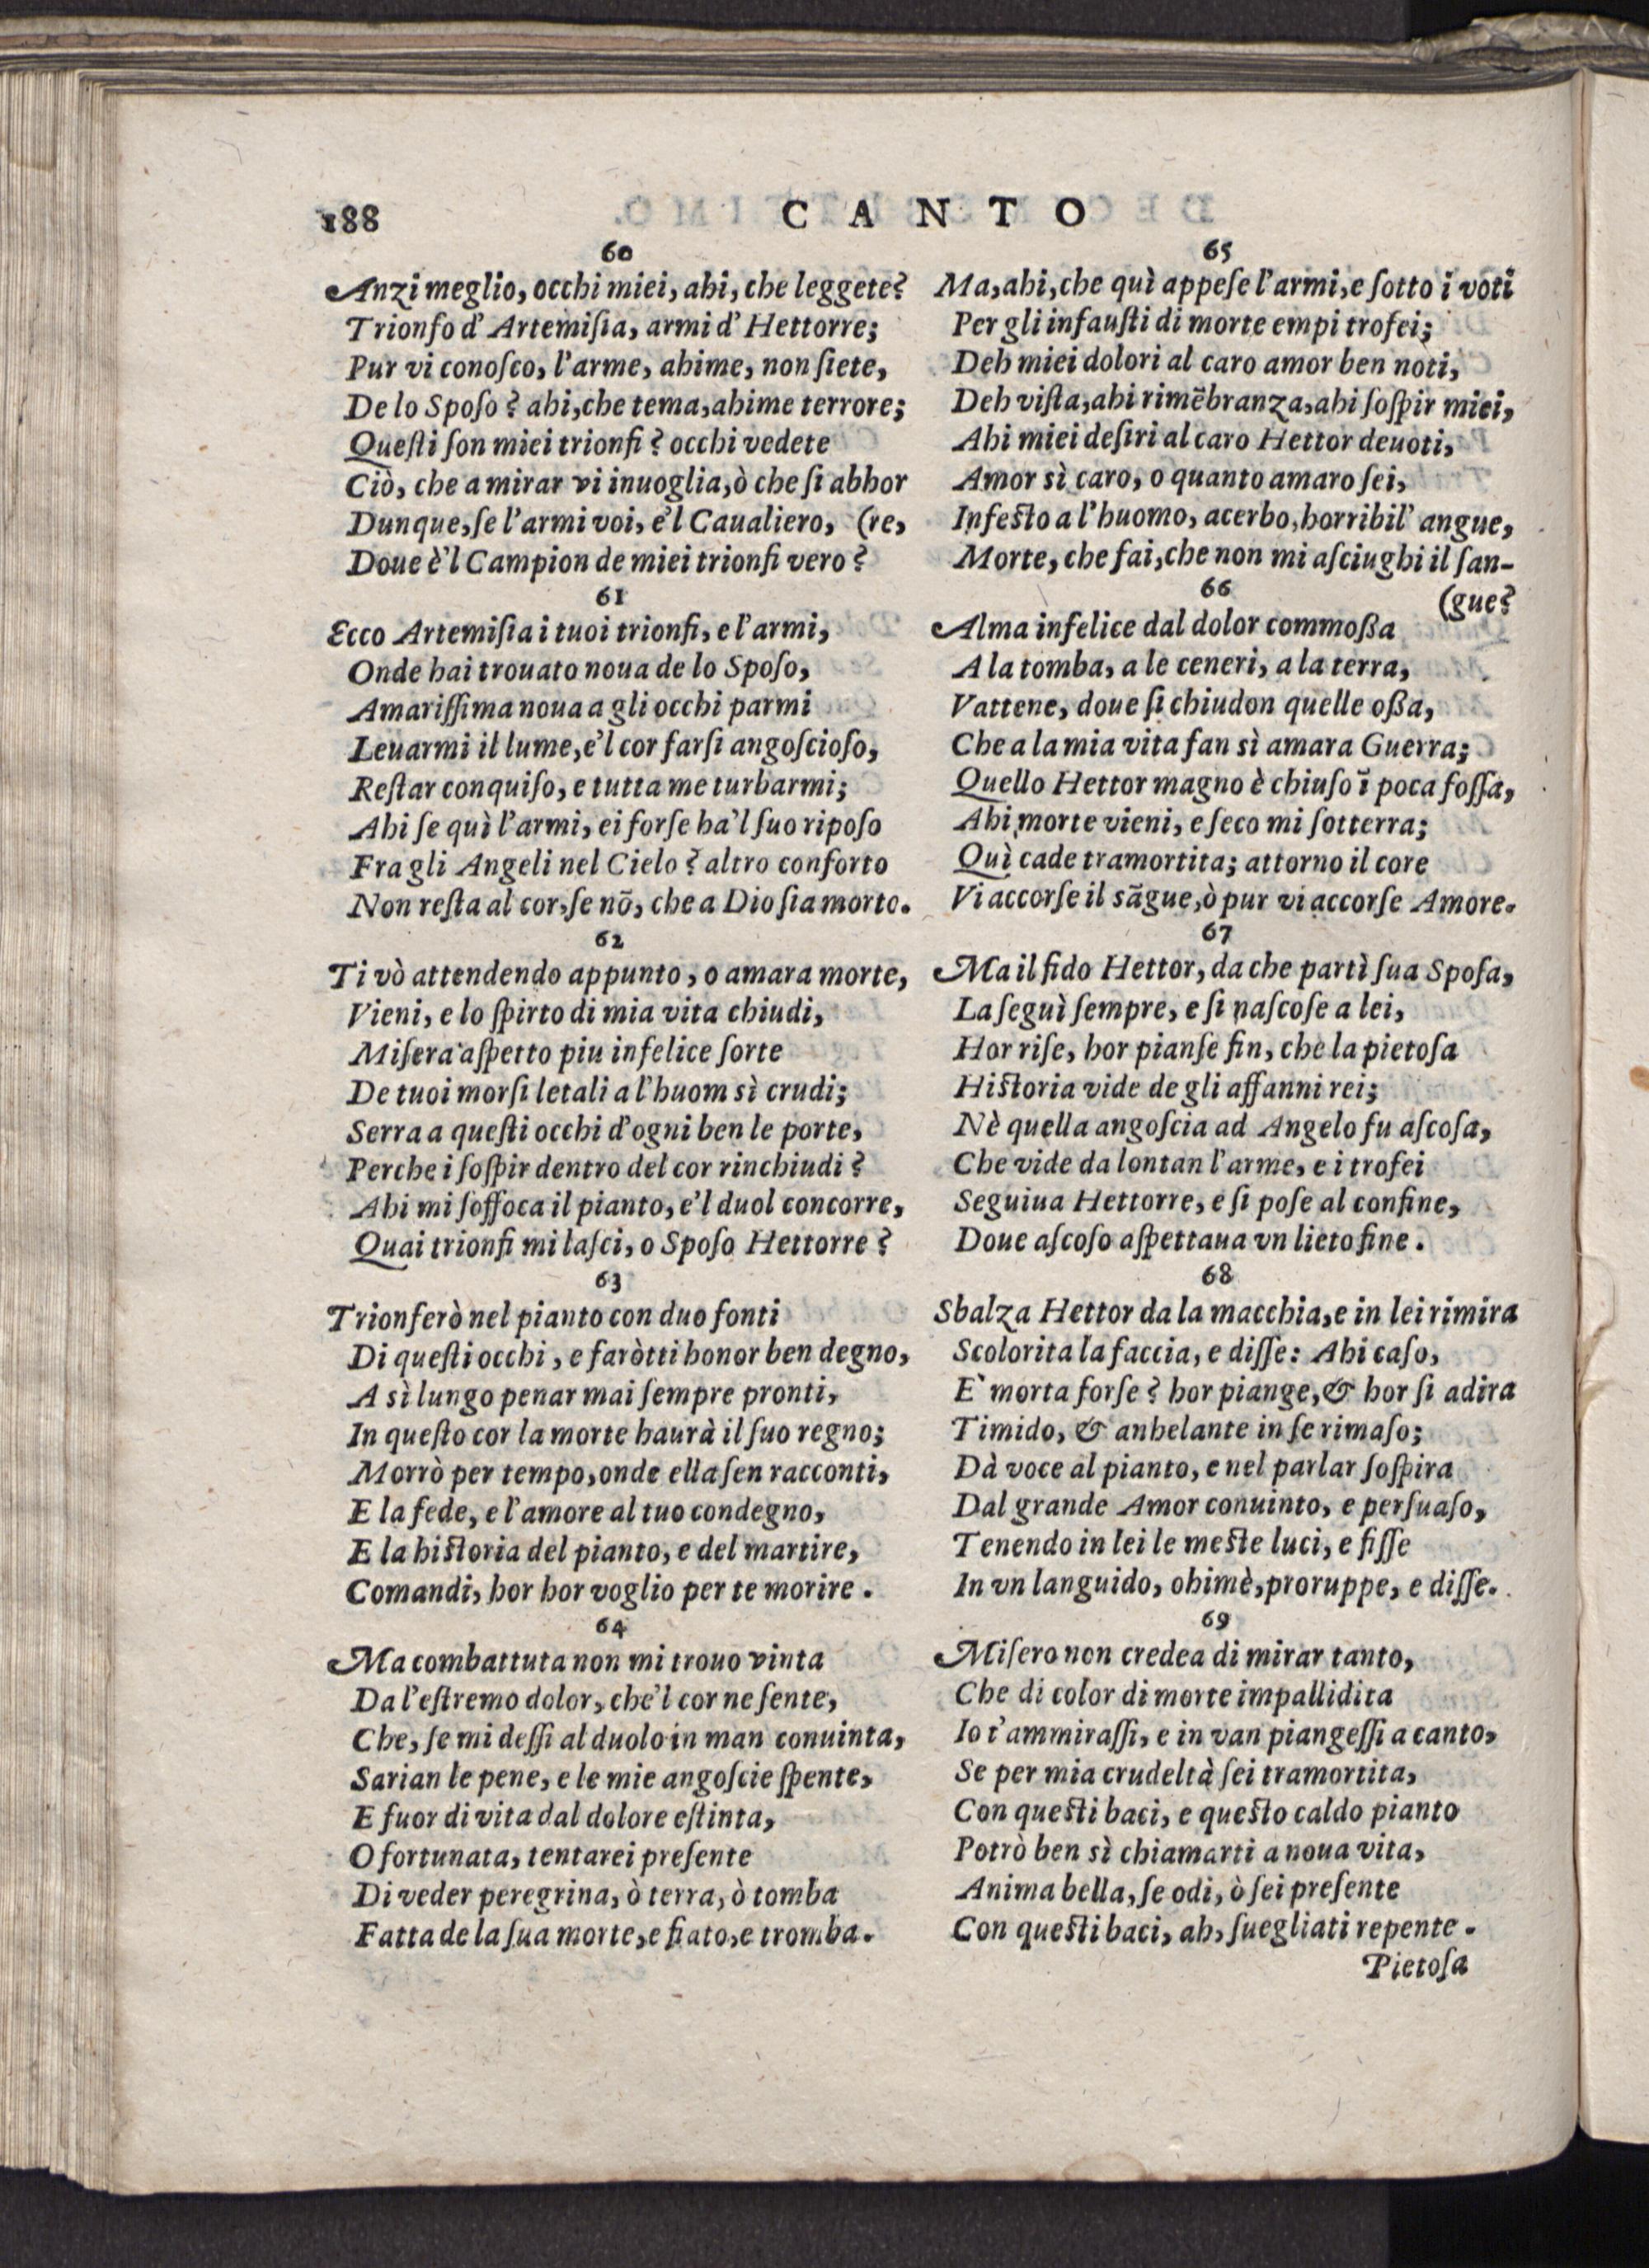 188
CANTO
60
Anzi meglio, occhi miei, ahi, che leggete?
Trionfo d'Artemiſia, armi d'Hettorre;
Pur vi conoſco, l'arme, ahime, non ſiete,
De lo Spoſo? ahi, che tema, ahime terrore;
Queſti ſon miei trionfi? occhi vedete
Ciò, che a mirar vi inuoglia, ò che ſi abhor
Dunque, ſe l'armi voi, e'l Caualiero, (re,
Doue è'l Campion de miei trionfi vero?
61
Ecco Artemiſia i tuoi trionfi, e l'armi,
Onde hai trouato noua de lo Spoſo,
Amariſſima noua a gli occhi parmi
Leuarmi il lume, e'l cor farſi angoſcioſo,
Reſtar conquiſo, e tutta me turbarmi;
Ahi ſe quì l'armi, ei forſe ha'l ſuo ripoſo
Fra gli Angeli nel Cielo? altro conforto
Non reſta al cor, ſe nō, che a Dio ſia morto.
62
Ti vò attendendo appunto, o amara morte,
Vieni, e lo ſpirto di mia vita chiudi,
Miſera aſpetto piu infelice ſorte
De tuoi morſi letali a l'huom sì crudi;
Serra a queſti occhi d'ogni ben le porte,
Perche i ſoſpir dentro del cor rinchiudi?
Ahi mi ſoffoca il pianto, e'l duol concorre,
Quai trionfi mi laſci, o Spoſo Hettorre?
63
Trionferò nel pianto con duo fonti
Di queſti occhi, e faròtti honor ben degno,
A sì lungo penar mai ſempre pronti,
In queſto cor la morte haurà il ſuo regno;
Morrò per tempo, onde ella ſen racconti,
E la fede, e l'amore al tuo condegno,
E la hiſtoria del pianto, e del martire,
Comandi, hor hor voglio per te morire.
64
Ma combattuta non mi trouo vinta
Da l'eſtremo dolor, che'l cor ne ſente,
Che, ſe mi deſſi al duolo in man conuinta,
Sarian le pene, e le mie angoſcie ſpente,
E fuor di vita dal dolore eſtinta,
O fortunata, tentarei preſente
Di veder peregrina, ò terra, ò tomba
Fatta de la ſua morte, e fiato, e tromba.
65
Ma, ahi, che quì appeſe l'armi, e ſotto i voti
Per gli infauſti di morte empi trofei;
Deh miei dolori al caro amor ben noti,
Deh viſta, ahi rimēbranza, ahi ſoſpir miei,
Ahi miei deſiri al caro Hettor deuoti,
Amor sì caro, o quanto amaro ſei,
Infeſto a l'huomo, acerbo, horribil' angue,
Morte, che fai, che non mi aſciughi il ſan-
(gue?
66
Alma infelice dal dolor commoßa
A la tomba, a le ceneri, a la terra,
Vattene, doue ſi chiudon quelle oßa,
Che a la mia vita fan sì amara Guerra;
Quello Hettor magno è chiuſo ī poca foſſa,
Ahi morte vieni, e ſeco mi ſotterra;
Quì cade tramortita; attorno il core
Vi accorſe il sāgue, ò pur vi accorſe Amore.
67
Ma il fido Hettor, da che partì ſua Spoſa,
La ſeguì ſempre, e ſi naſcoſe a lei,
Hor riſe, hor pianſe fin, che la pietoſa
Hiſtoria vide de gli affanni rei;
Nè quella angoſcia ad Angelo fu aſcoſa,
Che vide da lontan l'arme, e i trofei
Seguiua Hettorre, e ſi poſe al confine,
Doue aſcoſo aſpettaua vn lieto fine.
68
Sbalza Hettor da la macchia, e in lei rimira
Scolorita la faccia, e diſſe: Ahi caſo,
E` morta forſe? hor piange, & hor ſi adira
Timido, & anhelante in ſe rimaſo;
Dà voce al pianto, e nel parlar ſoſpira
Dal grande Amor conuinto, e perſuaſo,
Tenendo in lei le meſte luci, e fiſſe
In vn languido, ohimè, proruppe, e diſſe.
69
Miſero non credea di mirar tanto,
Che di color di morte impallidita
Io t'ammiraſſi, e in van piangeſſi a canto,
Se per mia crudeltà ſei tramortita,
Con queſti baci, e queſto caldo pianto
Potrò ben sì chiamarti a noua vita,
Anima bella, ſe odi, ò ſei preſente
Con queſti baci, ah, ſuegliati repente.
Pietoſa